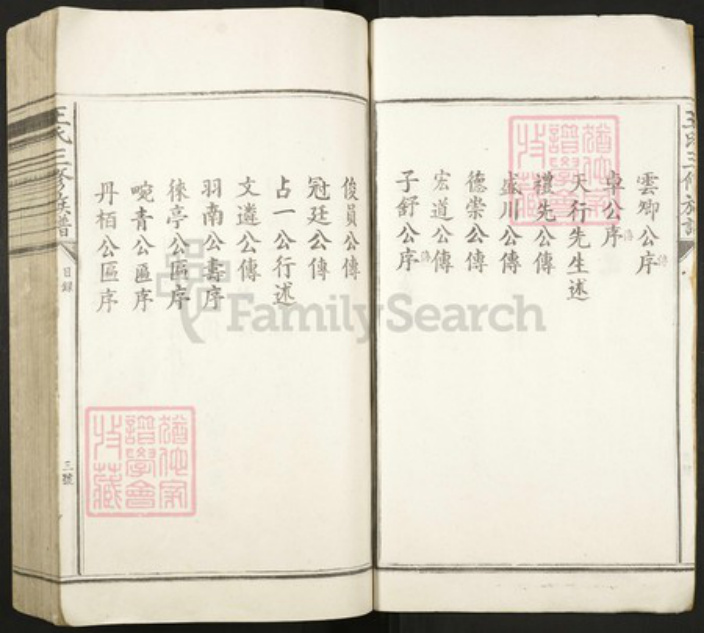 雲卿公序
卓公序
天行先生述
禮先公傳
盛川公傳
德崇公傳
宏道公傳
子舒公序
俊員公傳
冠廷公傳
占一公行述
文遴公傳
羽南公壽序
徠亭公區序
啘青公區序
丹栢公區序
王氏三修族譜
目錄
三號
王氏三修族譜
FamilySearch